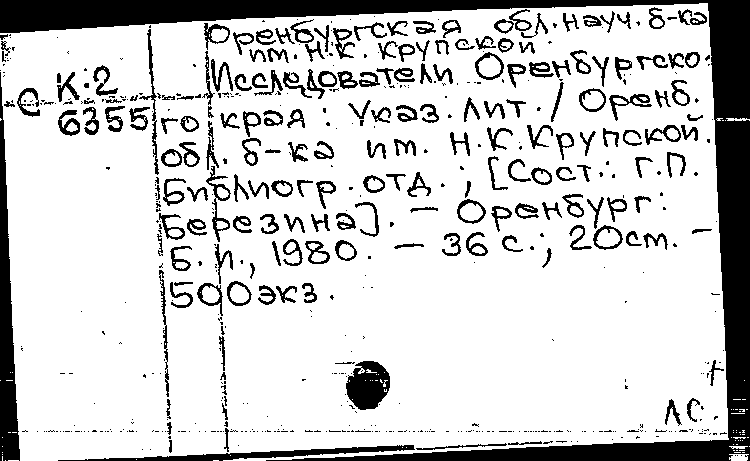 Оренбургская обл. науч. б-ка
им. Н.К. Крупской.
Исследователи Оренбургско-
С К-2
6355
го края : Указ. лит. / Оренб.
обл. б-ка им. Н.К. Крупской.
Библиогр. отд. ; [Сост.: Г.П.
Березина]. — Оренбург:
Б. и., 1980. — 36 с.; 20 см. —
500 экз.
+
ЛС.